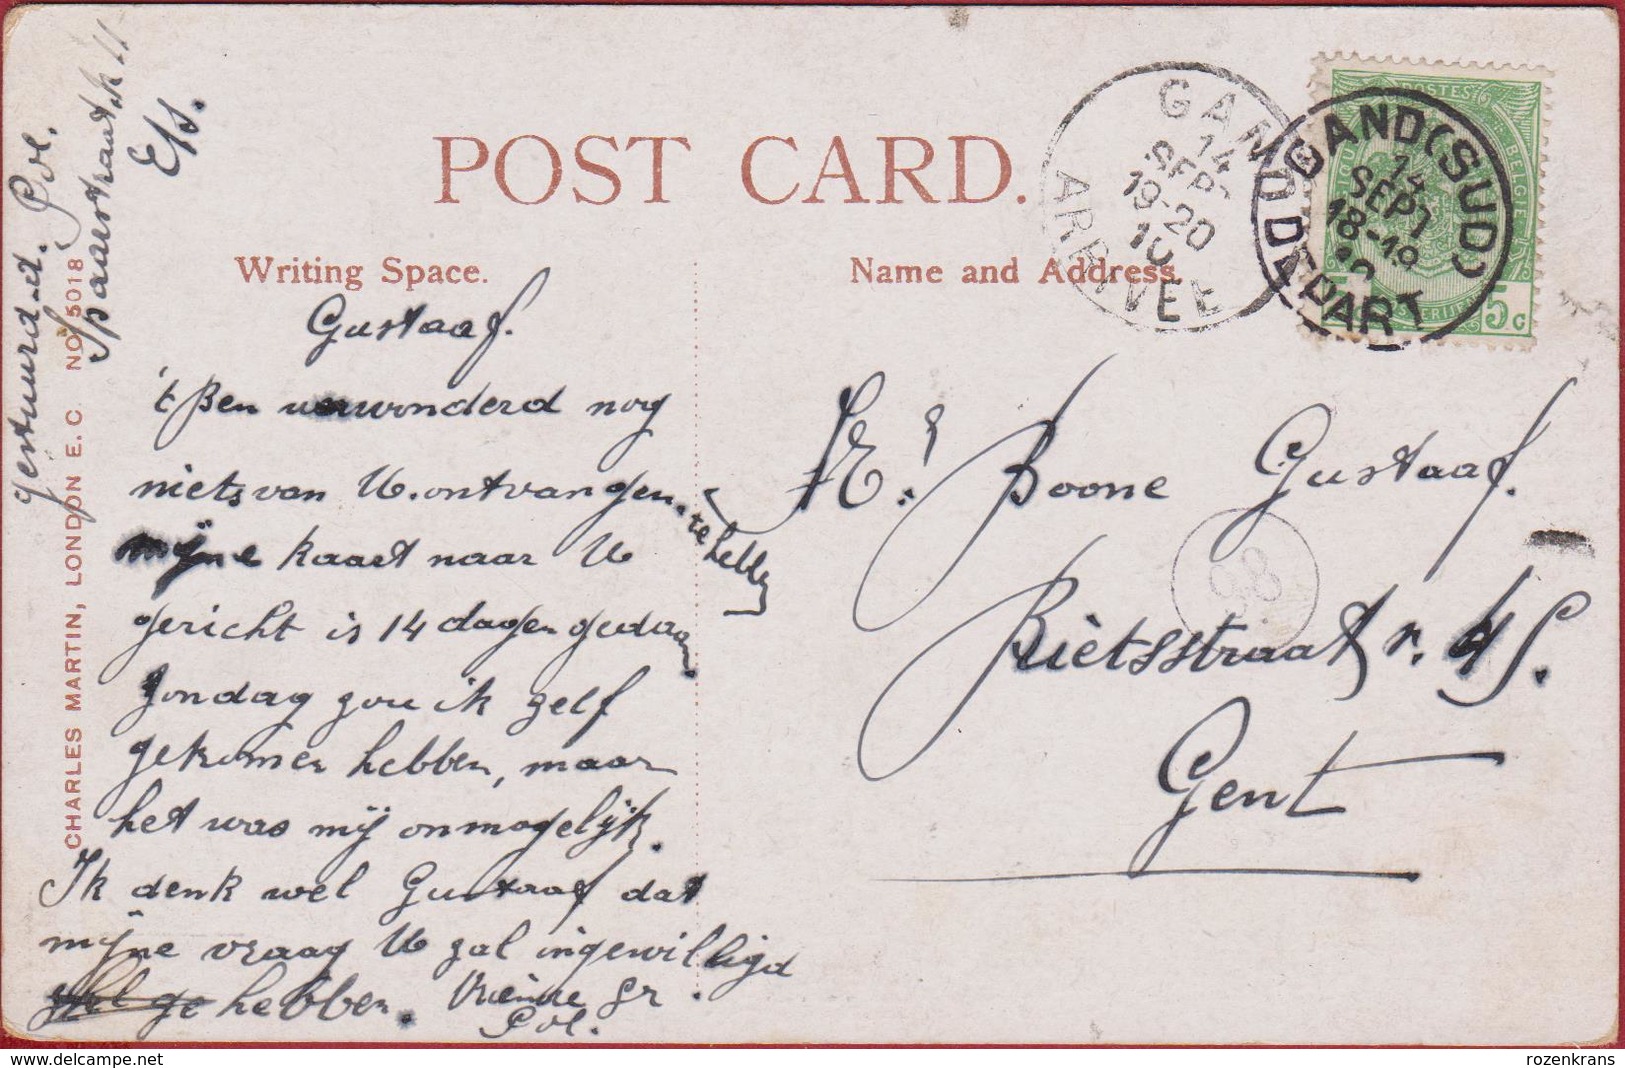 POST CARD.
Writing Space.
Name and Address.
Gustaaf.
't Ben verwonderd nog
niets van U. ontvangen
te hebben
mijne kaart naar U
gericht is 14 dagen gedaan.
Zondag zou ik zelf
gekomen hebben, maar
het was mij onmogelijk.
Ik denk wel Gustaaf dat
mijne vraag U zal ingewilligd
hebben. Vriende gr.
Pol.
gestuurd. Pol.
Spaarstraat. 11
Ets.
CHARLES MARTIN, LONDON E. C. NO. 5018
Mr. Boone Gustaaf.
Rietsstraat r. 45.
Gent
GAND
14
SEPT
19-20
10
ARRIVEE
GAND (SUD)
14
SEPT
18-19
10
DEPART
POSTES
BELGIE
5 C
98
delcampe.net
rozenkrans